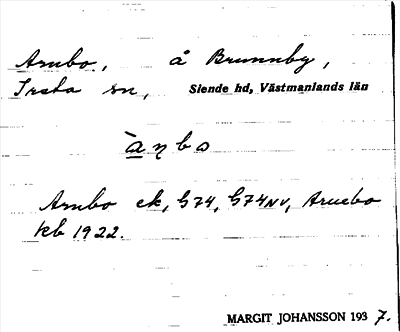 Arnbo, å Brunnby,
Irsta sn, Siende hd, Västmanlands län
àṇbo
Arnbo ek, G74, G74NV, Aruebo
kb 1922.
MARGIT JOHANSSON 1937.